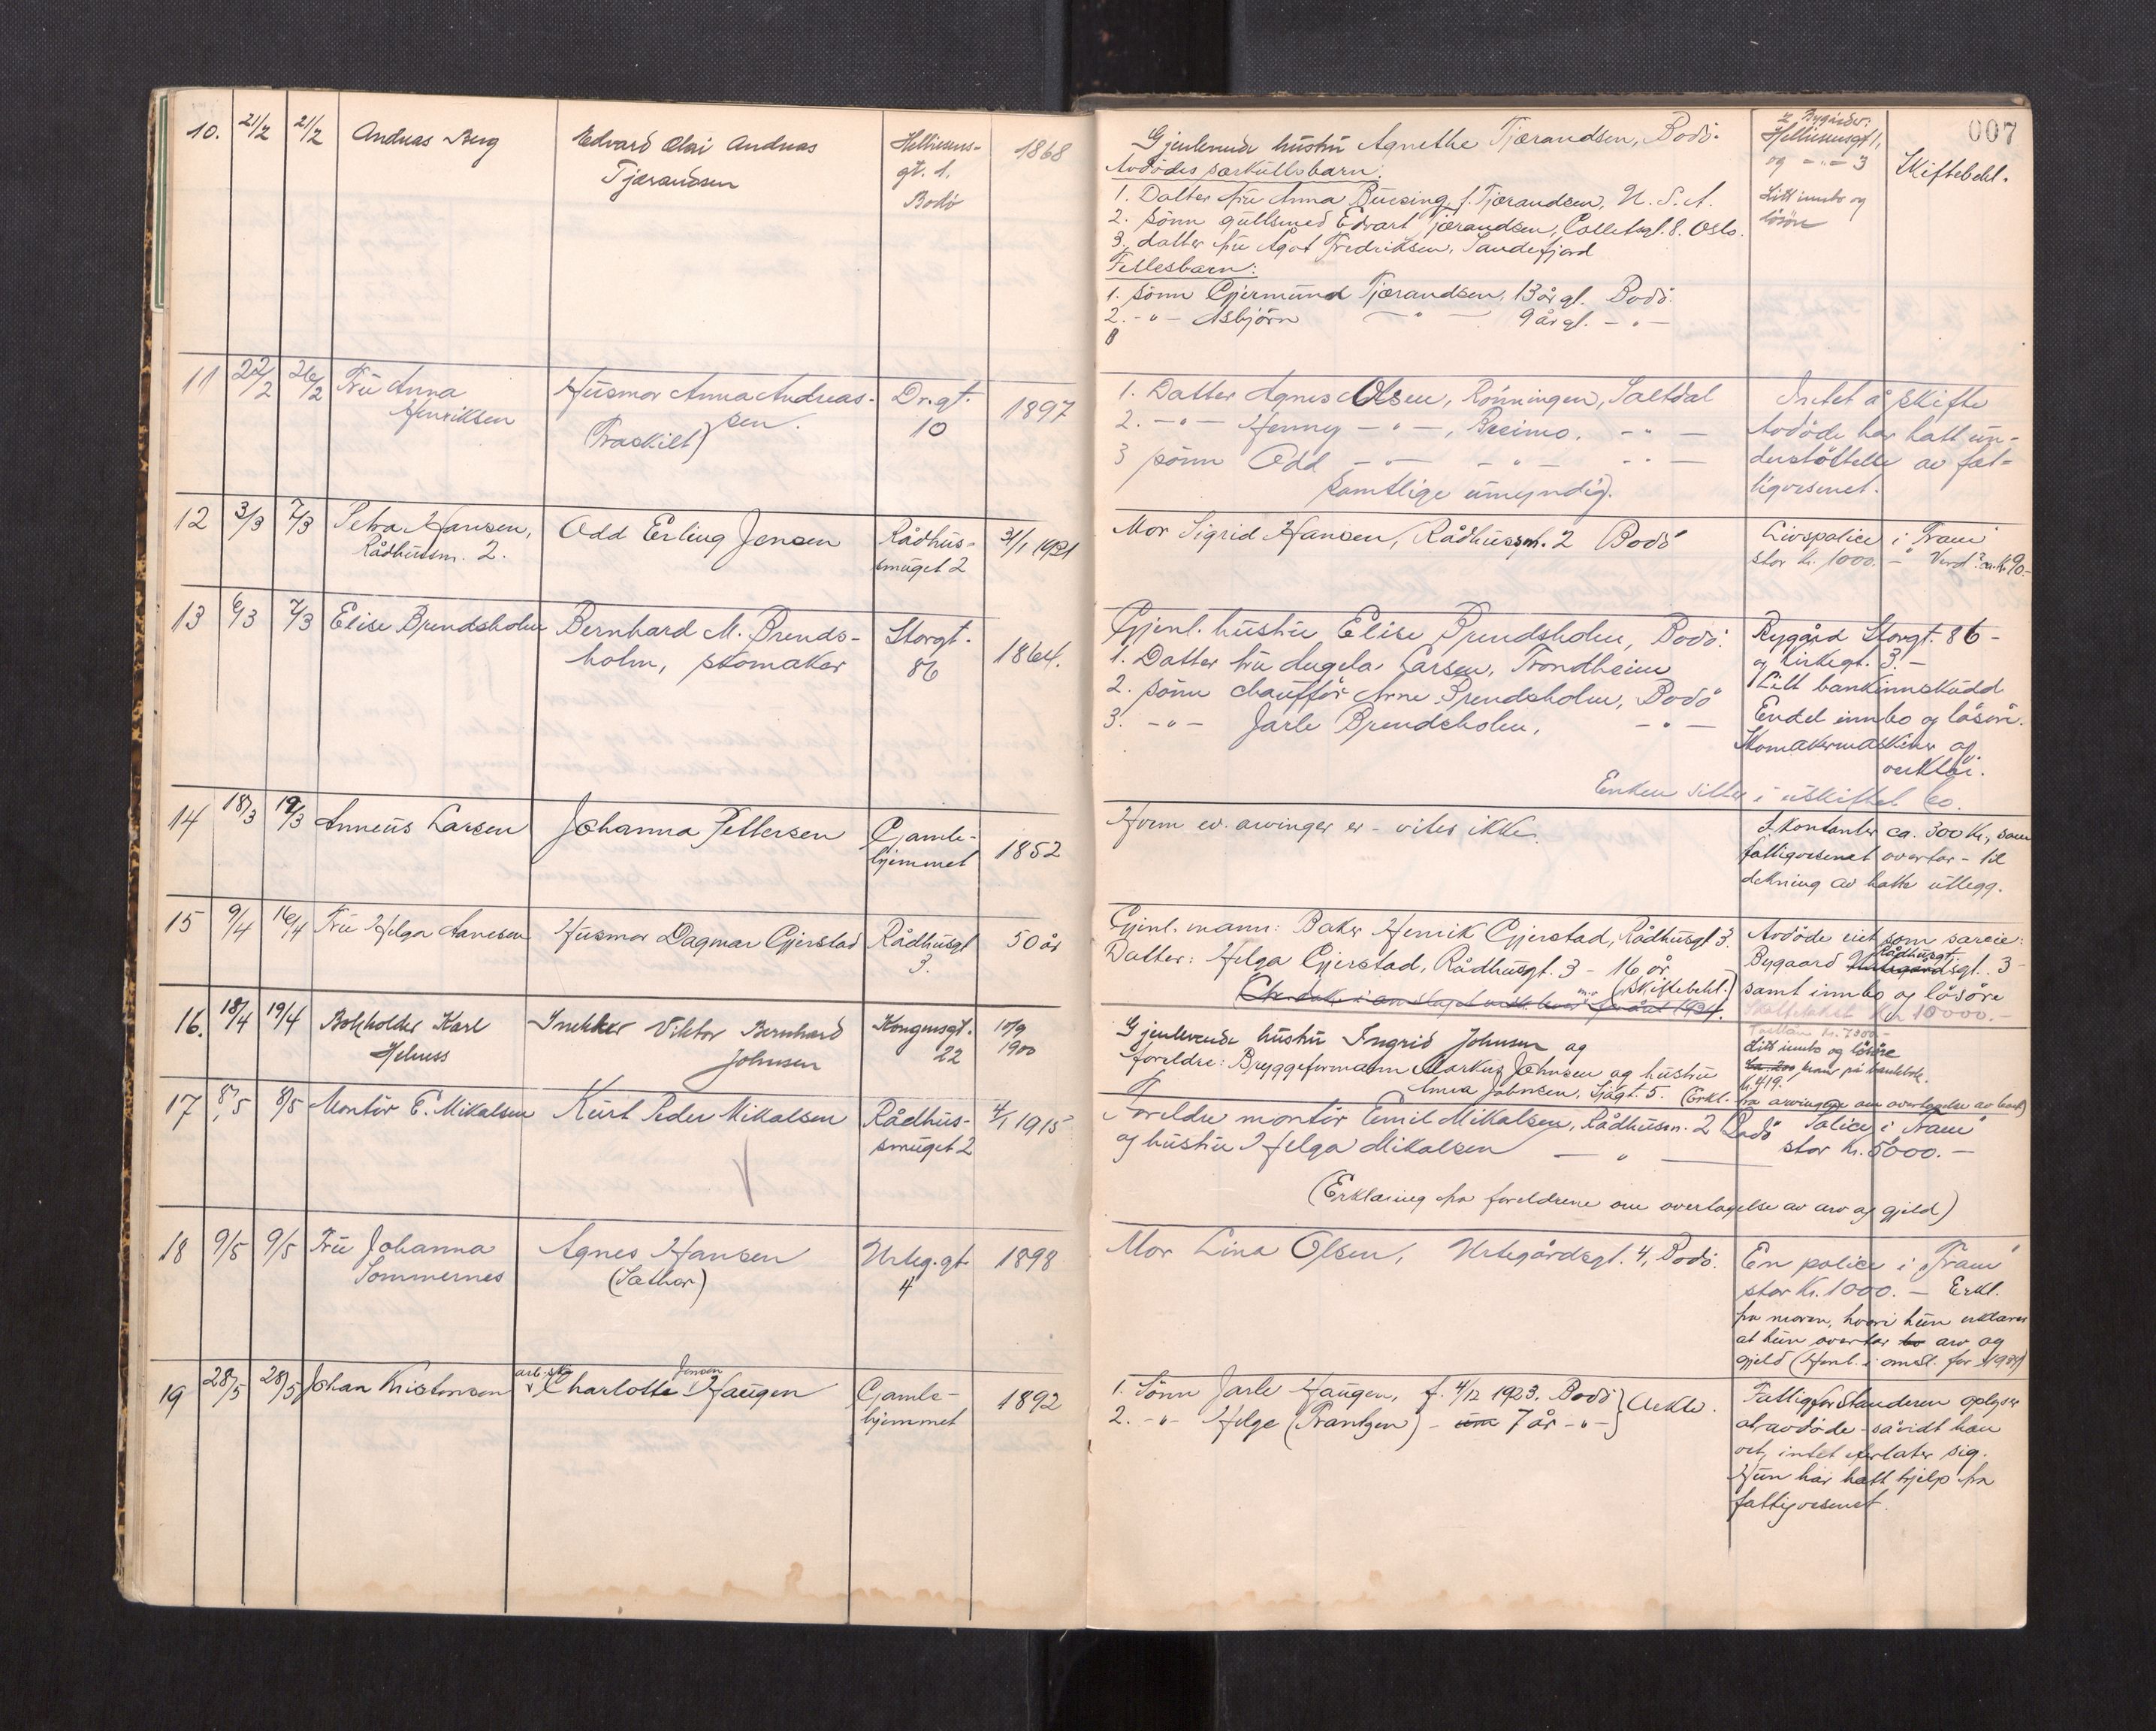 007
10. 21/2 21/2 Andreas Berg
Edvard Olai Andreas
Tjærandsen
Helliesens-
gt. 1.
Bodø
1868
Gjenlevende hustru Agnethe Tjærandsen, Bodø.
Avdødes særkullsbarn:
1. Datter fru Anna Buesing f. Tjærandsen, U.S.A.
2. sønn gullsmed Edvart Tjærandsen, Colletsgt. 8. Oslo.
3. datter fru Agot Fredriksen, Sandefjord
Fellesbarn:
1. sønn Gjermund Tjærandsen, 13 år gl. Bodø.
2. -"- Asbjørn -"- 9 år gl. -"-
2 Bygårder:
Helliesensgt 1,
og -"- 3
Litt innbo og
løsøre
Skiftebehl.
11 22/2 26/2 Fru Anna
Henriksen
Husmor Anna Andreas-
sen.
(Fraskilt)
Dr.gt.
10
1897
1. Datter Agnes Olsen, Rønningen, Saltdal
2. -"- Henny -"-, Breimo, -"-
3 sønn Odd -"- -"- -"-
Samtlige umyndig.
Intet å skifte
Avdøde har hatt un-
derstøttelse av fat-
tigvesenet.
12 3/3 7/3 Petra Hansen,
Rådhussm. 2.
Odd Erling Jensen
Rådhus-
smuget 2
31/1 1921
Mor Sigrid Hansen, Rådhussm. 2 Bodø
Livspolice i "Fram"
stor kr. 1000.- Verdi ca. kr. 90.-
13 6/3 7/3 Elise Brendsholm
Bernhard M. Brends-
holm, skomaker
Storgt.
86
1864.
Gjenl. hustru Elise Brendsholm, Bodø.
1. Datter fru Angela Larsen, Trondheim
2. sønn chauffør Arne Brendsholm, Bodø
3. -"- Jarle Brendsholm, -"-
Bygård Storgt. 86-
og Kirkegt. 3.-
Litt bankinnskudd
Endel innbo og løsøre.
Skomakermaskiner og
verktøi.
Enken sitter i uskiftet bo.
14 18/3 19/3 Anneus Larsen
Johanna Pettersen
Gamle-
hjemmet
1852
Hvem ev. arvinger er - vites ikke.
I kontanter ca. 300 kr., som
fattigvesenet overtar - til
dekning av hatte utlegg.
15 9/4 16/4 Fru Helga Aanesen
Husmor Dagmar Gjerstad
Rådhusgt
3.
50 år
Gjenl. mann: Baker Henrik Gjerstad, Rådhusgt 3.
Datter: Helga Gjerstad, Rådhusgt. 3 - 16 år
(Skiftebehl.)
for året 1934.
Avdøde eiet som særeie:
Bygaard Rådhusgt. 3-
samt innbo og løsøre
Skattetakst kr 10000.-
16. 18/4 19/4 Bokholder Karl
Helness
Snekker Viktor Bernhard
Johnsen
Kongensgt.
22
10/9
1900
Gjenlevende hustru Ingrid Johnsen og
foreldre: Bryggeformann Markus Johnsen og hustru
Anna Johnsen, Sjøgt. 5. (Erkl. fra arvingene om overtagelse av boet)
Litt innbo og løsøre
på bankbok.
kr. 419.
17 8/5 8/5 Montør E. Mikalsen
Kurt Peder Mikalsen
Rådhus-
smuget 2
4/1 1915
Foreldre montør Emil Mikalsen, Rådhussm. 2 Bodø
og hustru Helga Mikalsen -"-
Police i "Fram"
stor kr. 5000.-
(Erklæring fra foreldrene om overtagelse av arv og gjeld)
18 9/5 9/5 Fru Johanna
Sommernes
Agnes Hansen
(Sæther)
Urteg.gt.
4
1898
Mor Lina Olsen, Urtegårdsgt. 4, Bodø.
En police i "Fram"
stor kr. 1000.- Erkl.
fra moren, hvori hun erklærer
at hun overtar bo arv og
gjeld (Henl. i omsl. for 1934)
19 28/5 28/5 Johan Kristensen
arb.ske
Jensen
Charlotte Haugen
Gamle-
hjemmet
1892
1. Sønn Jarle Haugen, f. 4/12 1923. Bodø
2. -"- Helge (Frantzen) - 7 år -"-
Fattigforstanderen oplyser
at avdøde - såvidt han
vet, intet efterlater sig.
Hun har hatt hjelp fra
fattigvesenet.